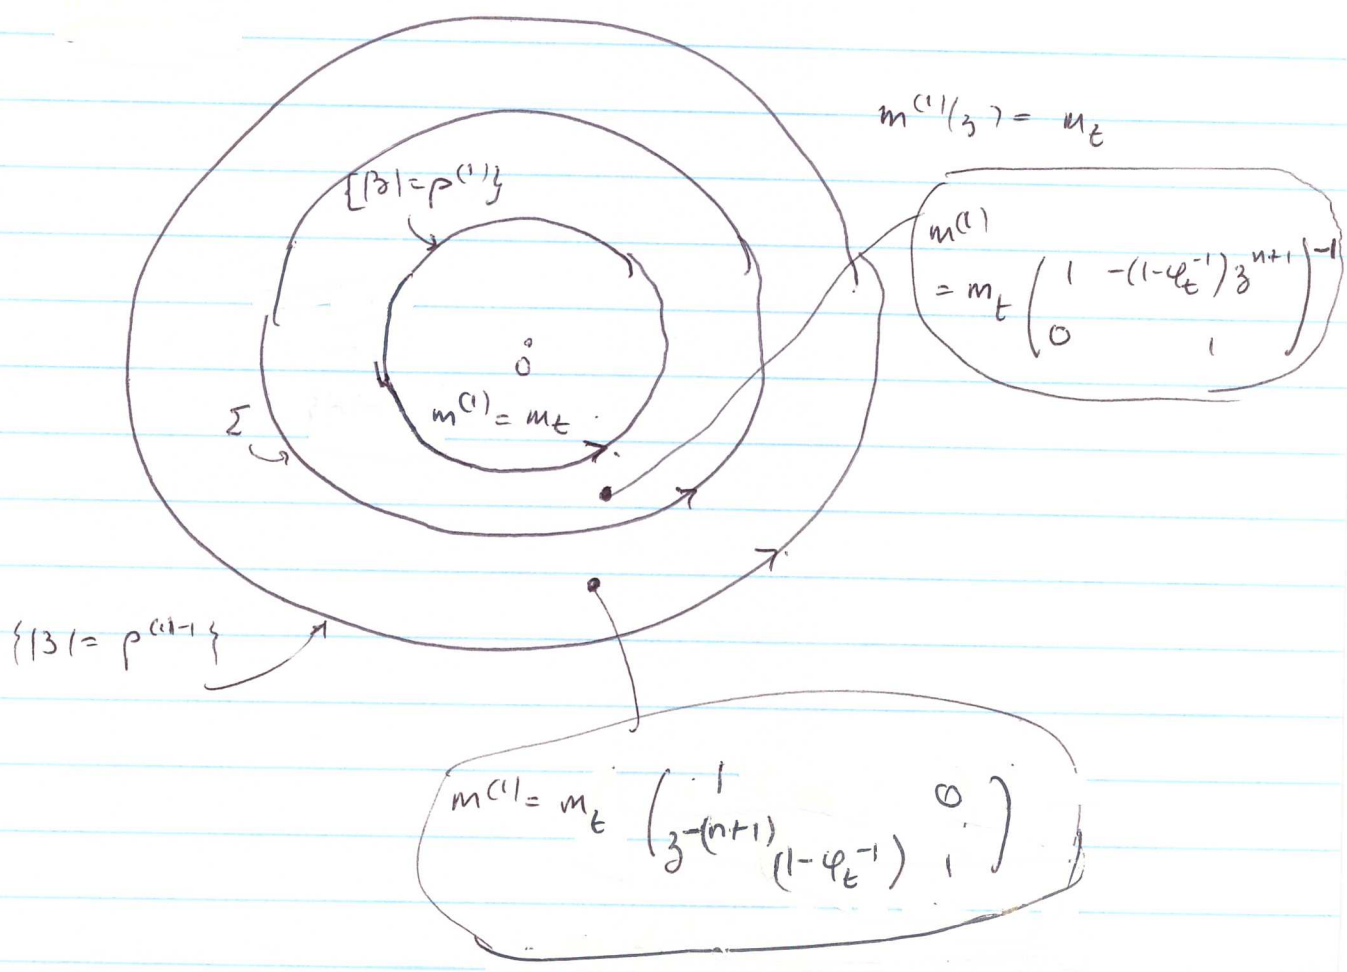 m^{(1)}(z) = m_t
{|z|=ρ^{(1)}}
m^{(1)}
= m_t ( 1 -(1-φ_t^{-1}) z^{n+1}
0 1 )^{-1}
0
m^{(1)} = m_t
Σ
{|z|= ρ^{(1)-1}}
m^{(1)} = m_t ( 1 0
z^{-(n+1)} (1-φ_t^{-1}) 1 )